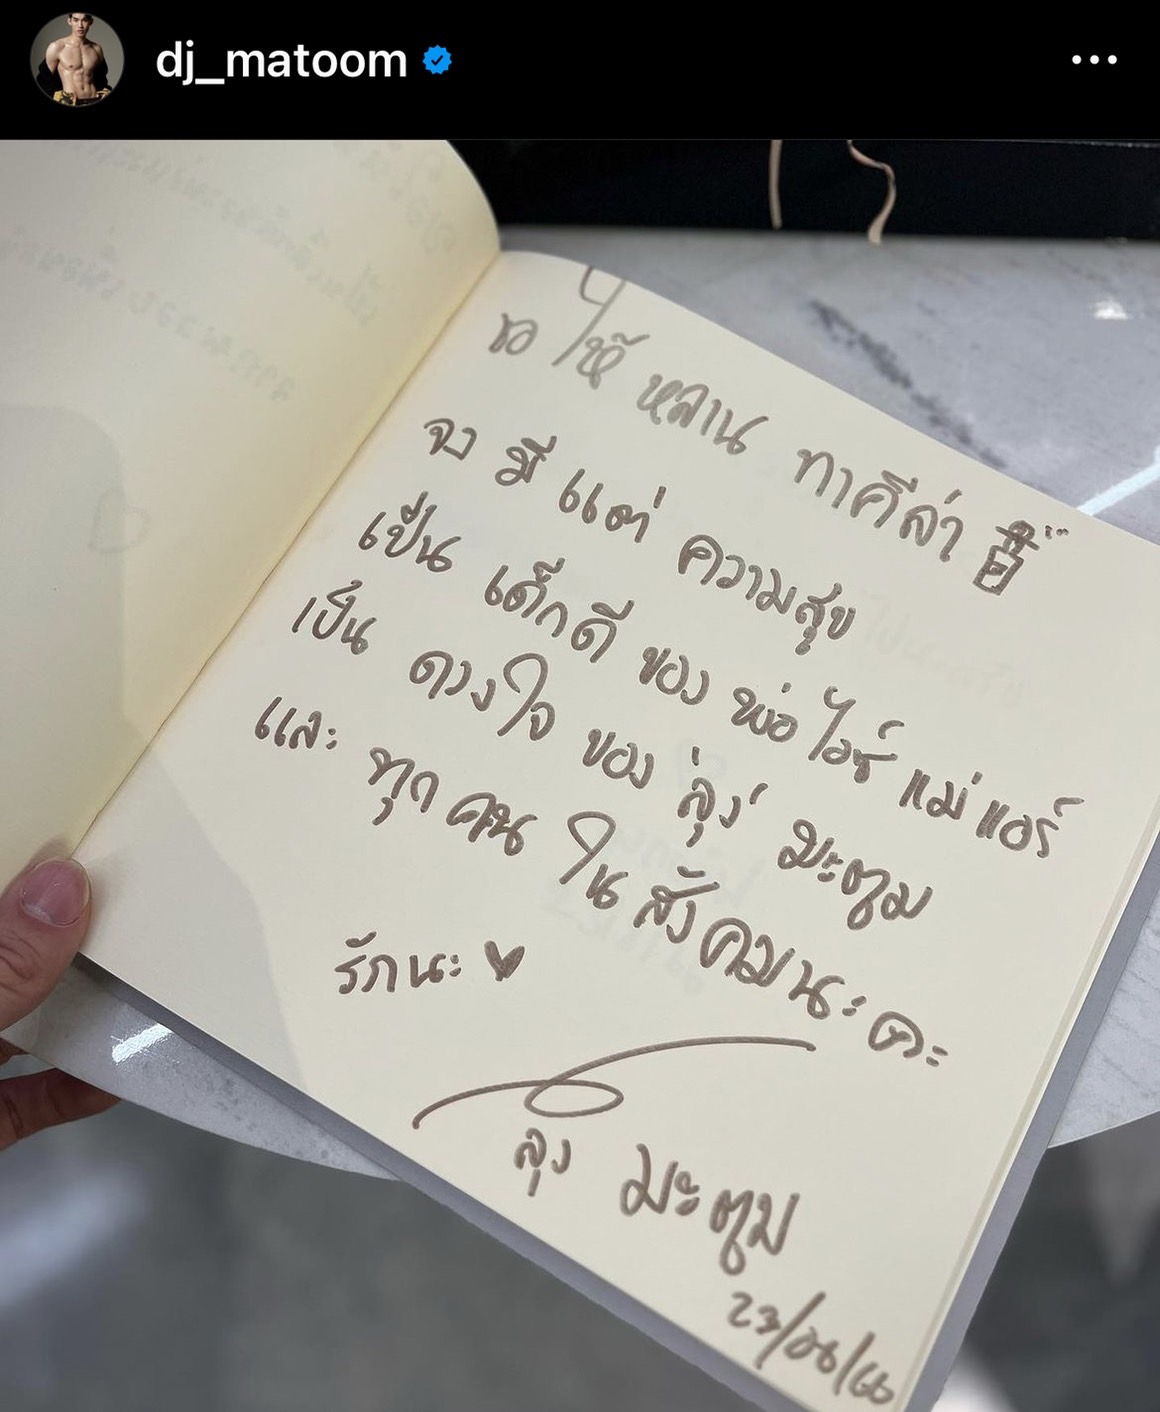 dj_matoom
ขอ ให้ หลาน ทาคีล่า
จง มี แต่ ความสุข
เป็น เด็กดี ของ พ่อ ไอซ์ แม่ แอร์
เป็น ดวงใจ ของ ลุง มะตูม
และ ทุก คน ใน สังคมนะคะ
รักนะ
ลุง มะตูม
23/06/66